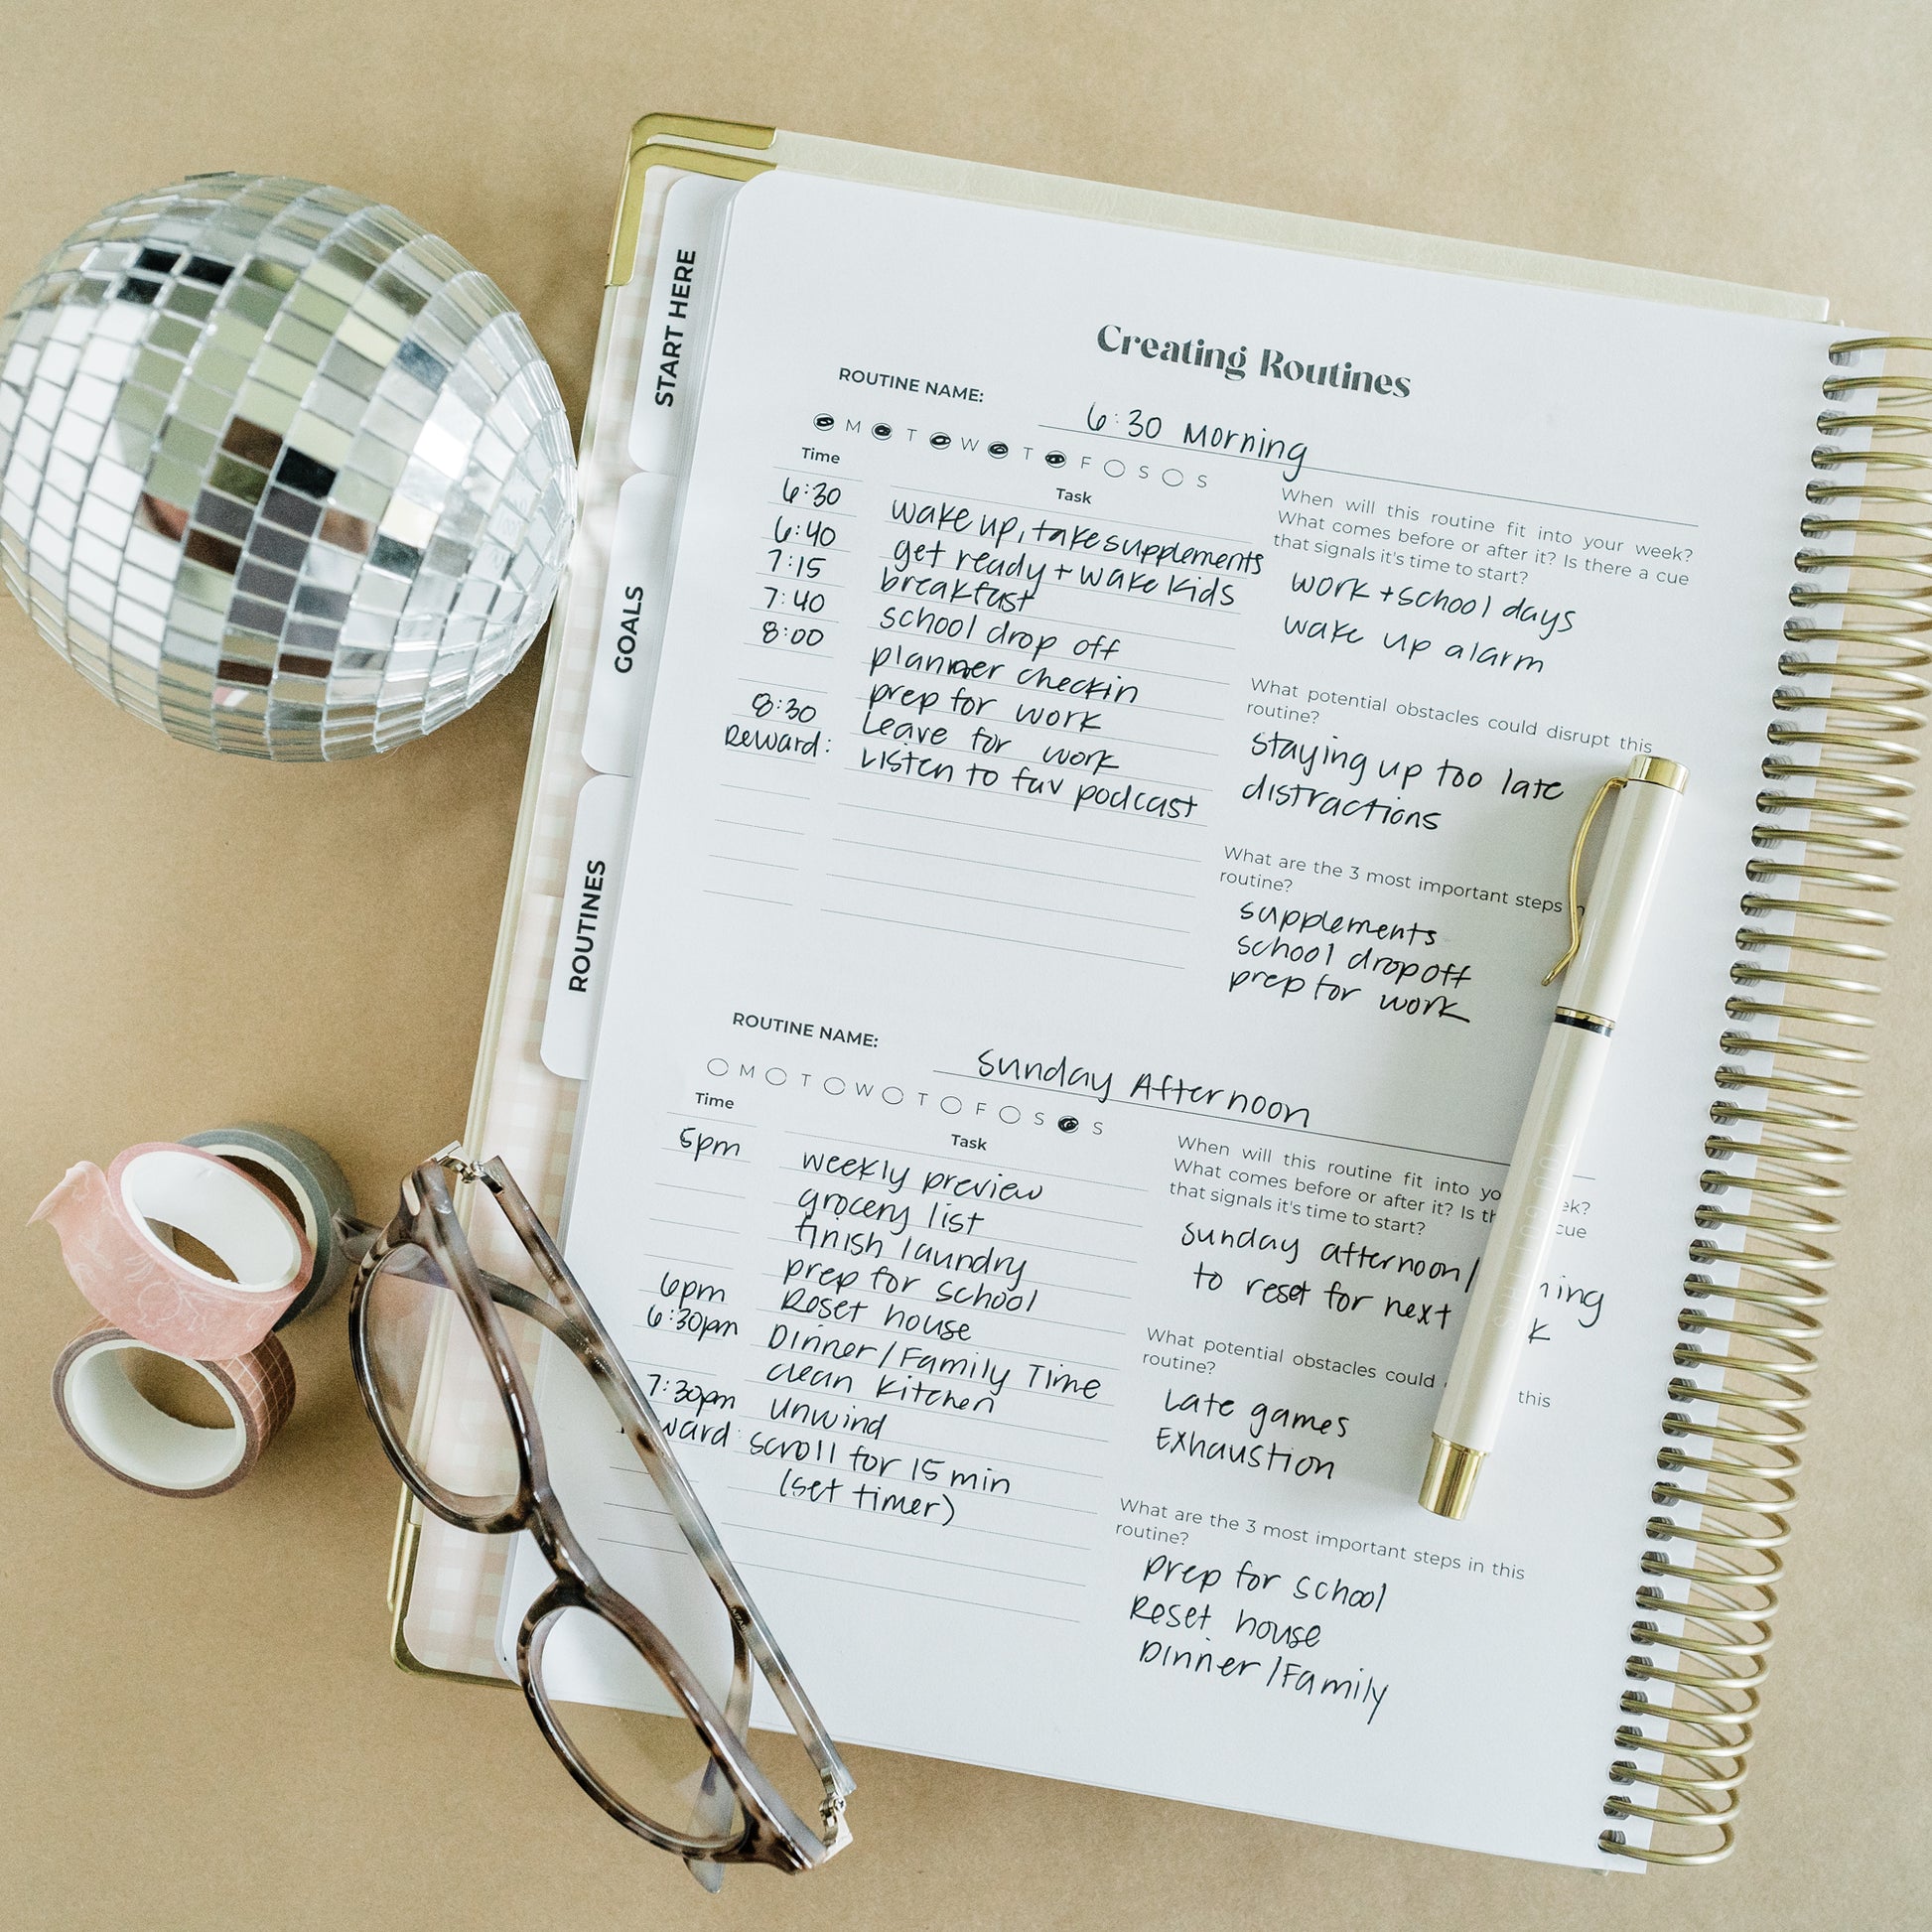 START HERE
GOALS
ROUTINES
Creating Routines
ROUTINE NAME: 6:30 Morning
M T W T F S S
Time Task
6:30 wake up, take supplements
6:40 get ready + wake kids
7:15 breakfast
7:40 school drop off
8:00 planner checkin
prep for work
8:30 Leave for work
Reward: Listen to fav podcast
When will this routine fit into your week?
What comes before or after it? Is there a cue
that signals it's time to start?
work + school days
wake up alarm
What potential obstacles could disrupt this
routine?
staying up too late
distractions
What are the 3 most important steps
routine?
supplements
school dropoff
prep for work
ROUTINE NAME: Sunday Afternoon
M T W T F S S
Time Task
5pm weekly preview
grocery list
finish laundry
prep for school
6pm Reset house
6:30pm Dinner/Family Time
clean kitchen
7:30pm unwind
ward: scroll for 15 min
(set timer)
When will this routine fit into yo ek?
What comes before or after it? Is th cue
that signals it's time to start?
Sunday afternoon/ ning
to reset for next k
What potential obstacles could this
routine?
Late games
Exhaustion
What are the 3 most important steps in this
routine?
Prep for school
Reset house
Dinner/Family